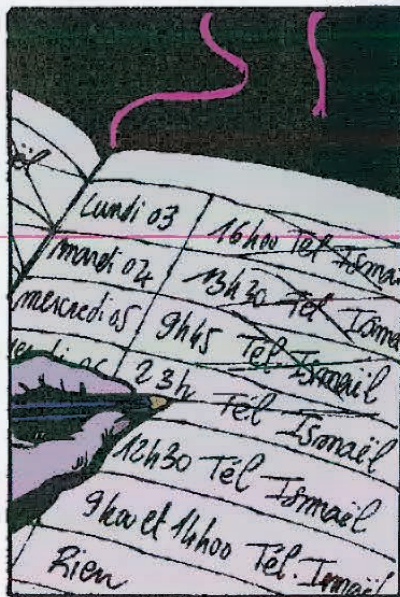 Lundi 03 16h00 Tél Isma
mardi 04 13h30 Tél Isma
mercredi 05 9h45 Tél Ismaël
23h Tél Ismaël
12h30 Tél Ismaël
9h00 et 14h00 Tél. Ismaël
Rien